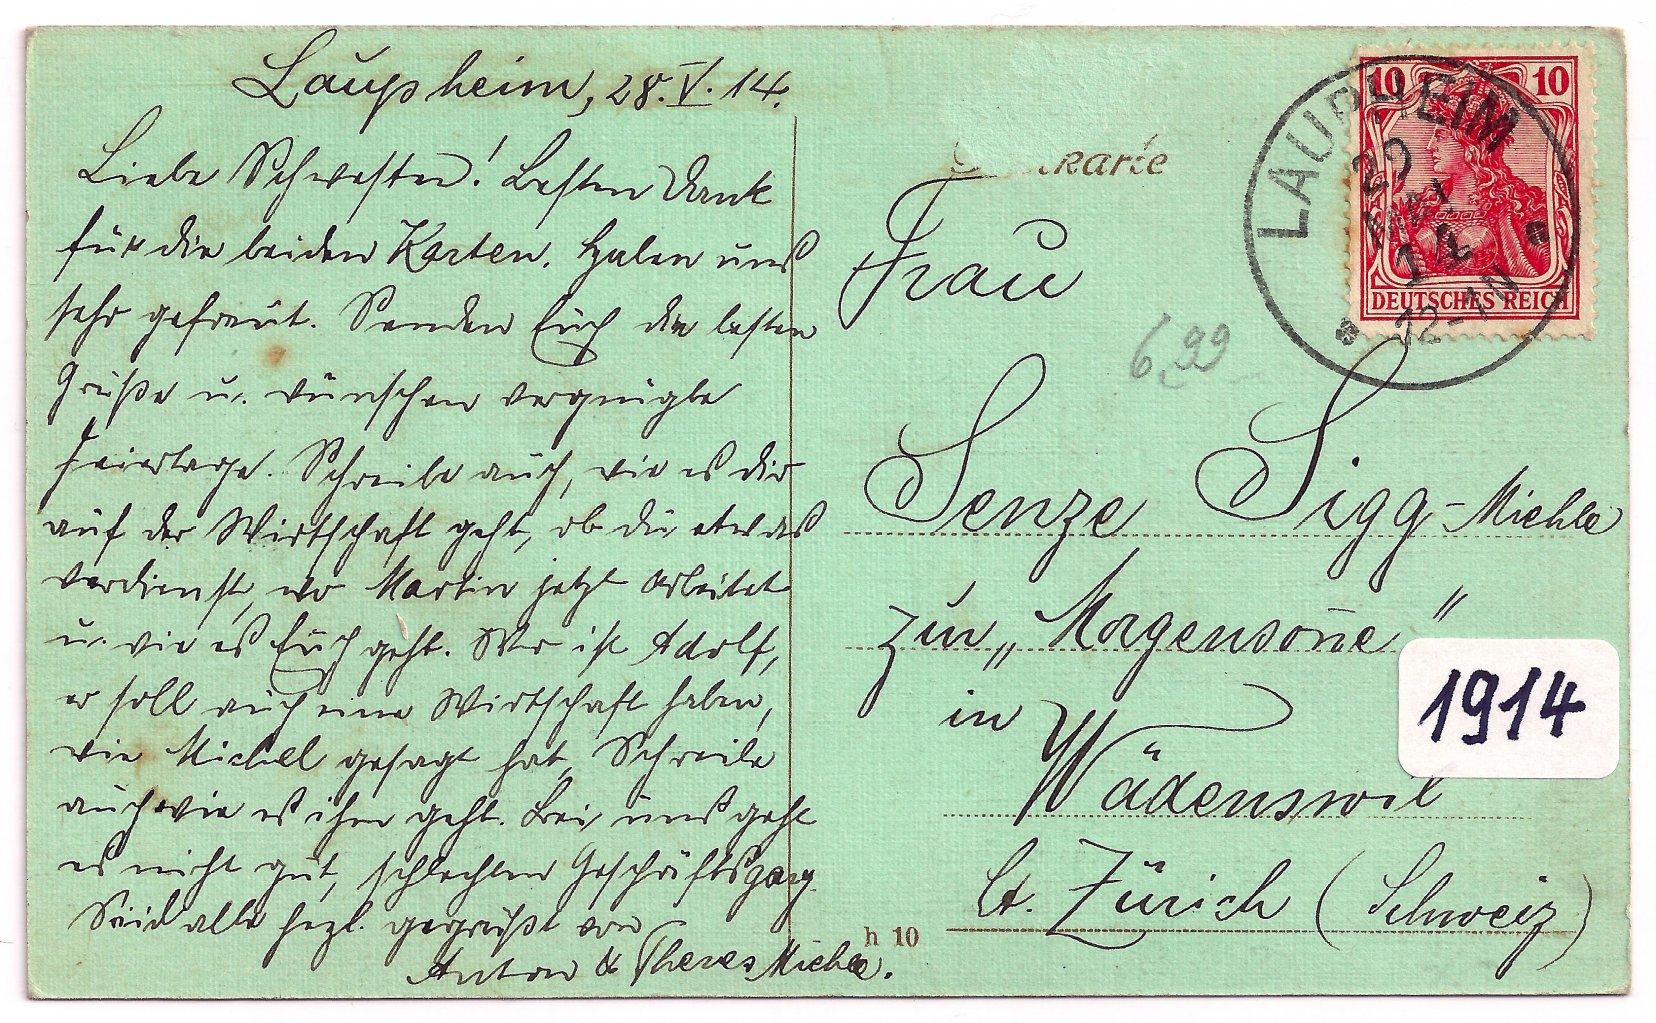 Laupheim, 28.V.14.
Liebe Schwester! Besten Dank
für die beiden Karten. Haben uns
sehr gefreut. Senden Euch die besten
Grüße u. wünschen vergnügte
Feiertage. Schreibe auch, wie es dir
auf der Wirtschaft geht, ob du etwas
verdienst, wo Martin jetzt arbeitet
u. wie es Euch geht. Wo ist Adolf,
er soll auch eine Wirtschaft haben,
wie Michel gesagt hat, Schreibe
auch wie es ihm geht. Bei uns geht
es nicht gut, schlechten Geschäftsgang
Seid alle herzl. gegrüßt von
Anton & Theres Miehle.
karte
Frau
Senze Sigg-Miehle
zur „Morgensoñe"
in
Wädenswil
Ct. Zürich (Schweiz)
h 10
6,99
1914
10 10
DEUTSCHES REICH
LAUPHEIM
29
MAI
14
12-1N